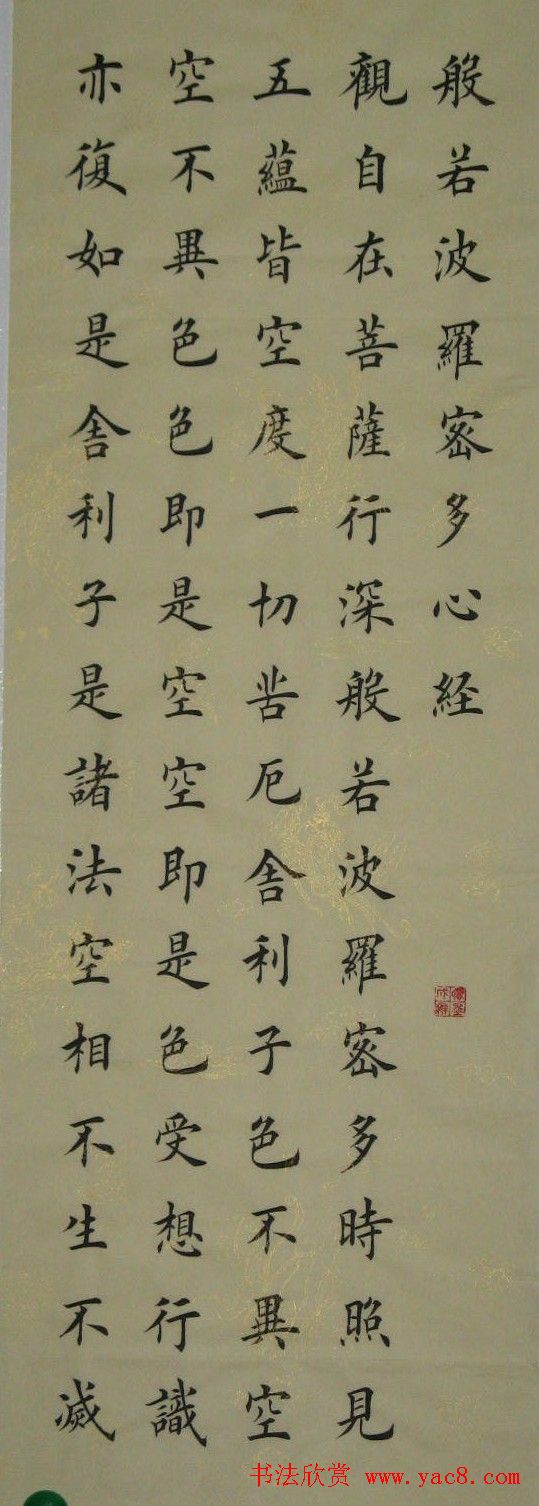 般若波羅密多心経
觀自在菩薩行深般若波羅密多時照見
五蘊皆空度一切苦厄舎利子色不異空
空不異色色即是空空即是色受想行識
亦復如是舎利子是諸法空相不生不滅
书法欣赏 www.yac8.com